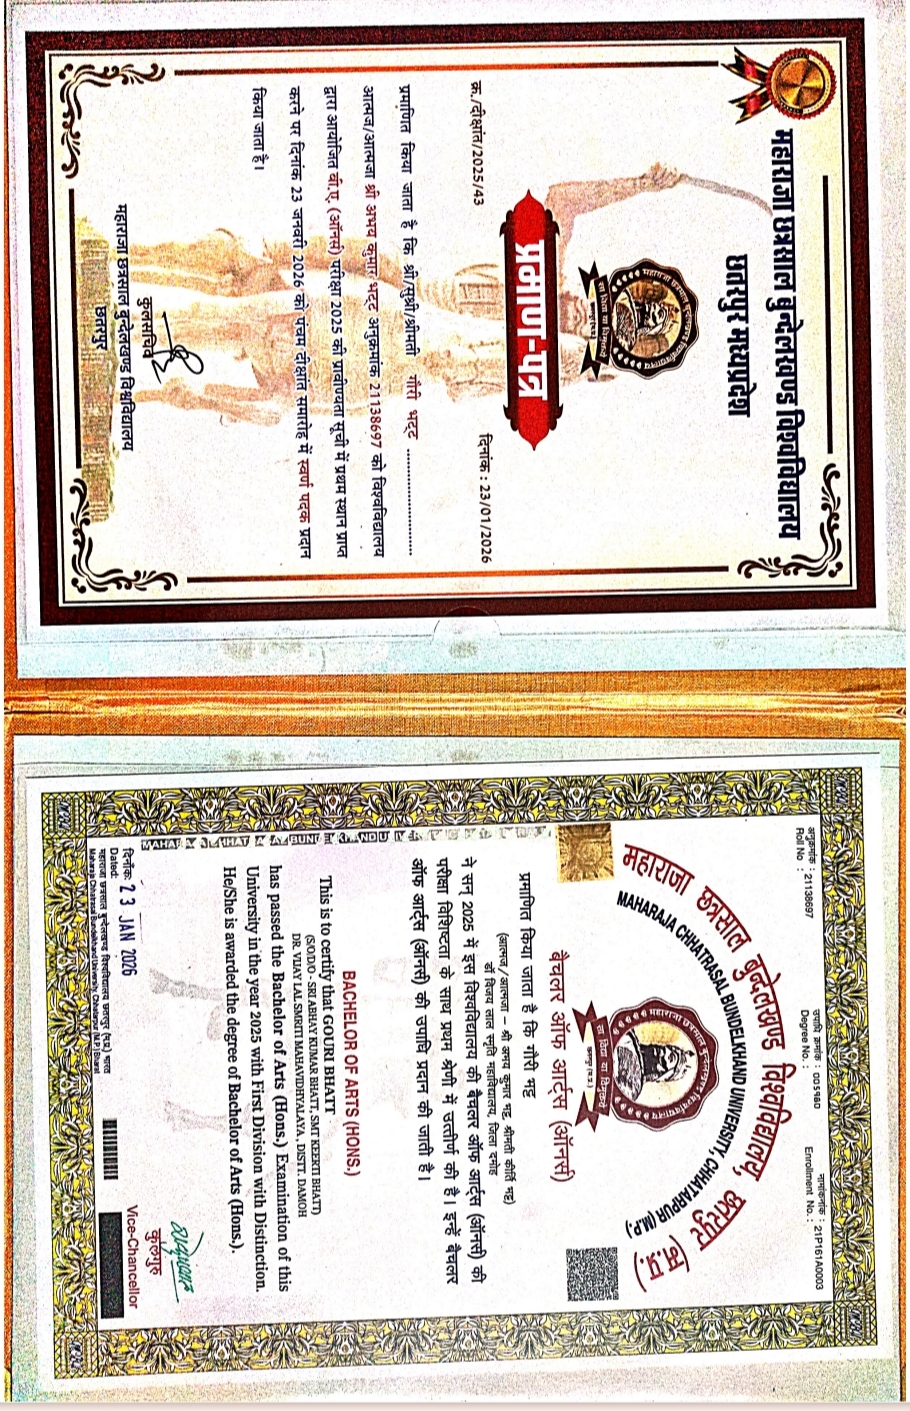 महाराजा छत्रसाल बुन्देलखण्ड विश्वविद्यालय
छतरपुर मध्यप्रदेश
प्रमाण-पत्र
क्र./दीक्षांत/2025/43
दिनांक : 23/01/2026
प्रमाणित किया जाता है कि श्री/सुश्री/श्रीमती गौरी भट्ट
आत्मज/आत्मजा श्री अभय कुमार भट्ट अनुक्रमांक 21138697 को विश्वविद्यालय
द्वारा आयोजित बी.ए. (ऑनर्स) परीक्षा 2025 की प्रावीण्यता सूची में प्रथम स्थान प्राप्त
करने पर दिनांक 23 जनवरी 2026 को पंचम दीक्षांत समारोह में स्वर्ण पदक प्रदान
किया जाता है।
कुलसचिव
महाराजा छत्रसाल बुन्देलखण्ड विश्वविद्यालय
छतरपुर
अनुक्रमांक : 21138697
Roll No :
उपाधि क्रमांक : 005980
Degree No. :
नामांकनांक : 21P161A0003
Enrollment No. :
महाराजा छत्रसाल बुन्देलखण्ड विश्वविद्यालय, छतरपुर (म.प्र.)
MAHARAJA CHHATRASAL BUNDELKHAND UNIVERSITY, CHHATARPUR (M.P.)
बैचलर ऑफ आर्ट्स (ऑनर्स)
प्रमाणित किया जाता है कि गौरी भट्ट
(आत्मज/आत्मजा - श्री अभय कुमार भट्ट श्रीमती कीर्ति भट्ट)
डॉ विजय लाल स्मृति महाविद्यालय, जिला दमोह
ने सन् 2025 में इस विश्वविद्यालय की बैचलर ऑफ आर्ट्स (ऑनर्स) की
परीक्षा विशिष्टता के साथ प्रथम श्रेणी में उत्तीर्ण की है। इन्हें बैचलर
ऑफ आर्ट्स (ऑनर्स) की उपाधि प्रदान की जाती है।
BACHELOR OF ARTS (HONS.)
This is to certify that GOURI BHATT
(S/O/D/O - SRI ABHAY KUMAR BHATT, SMT KEERTI BHATT)
DR. VIJAY LAL SMRITI MAHAVIDHYALAYA, DISTT. DAMOH
has passed the Bachelor of Arts (Hons.) Examination of this
University in the year 2025 with First Division with Distinction.
He/She is awarded the degree of Bachelor of Arts (Hons.).
दिनांक: 23 JAN 2026
Dated:
महाराजा छत्रसाल बुन्देलखण्ड विश्वविद्यालय छतरपुर (म.प्र.) भारत
Maharaja Chhatrasal Bundelkhand University, Chhatarpur (M.P.) Bharat
कुलगुरु
Vice-Chancellor